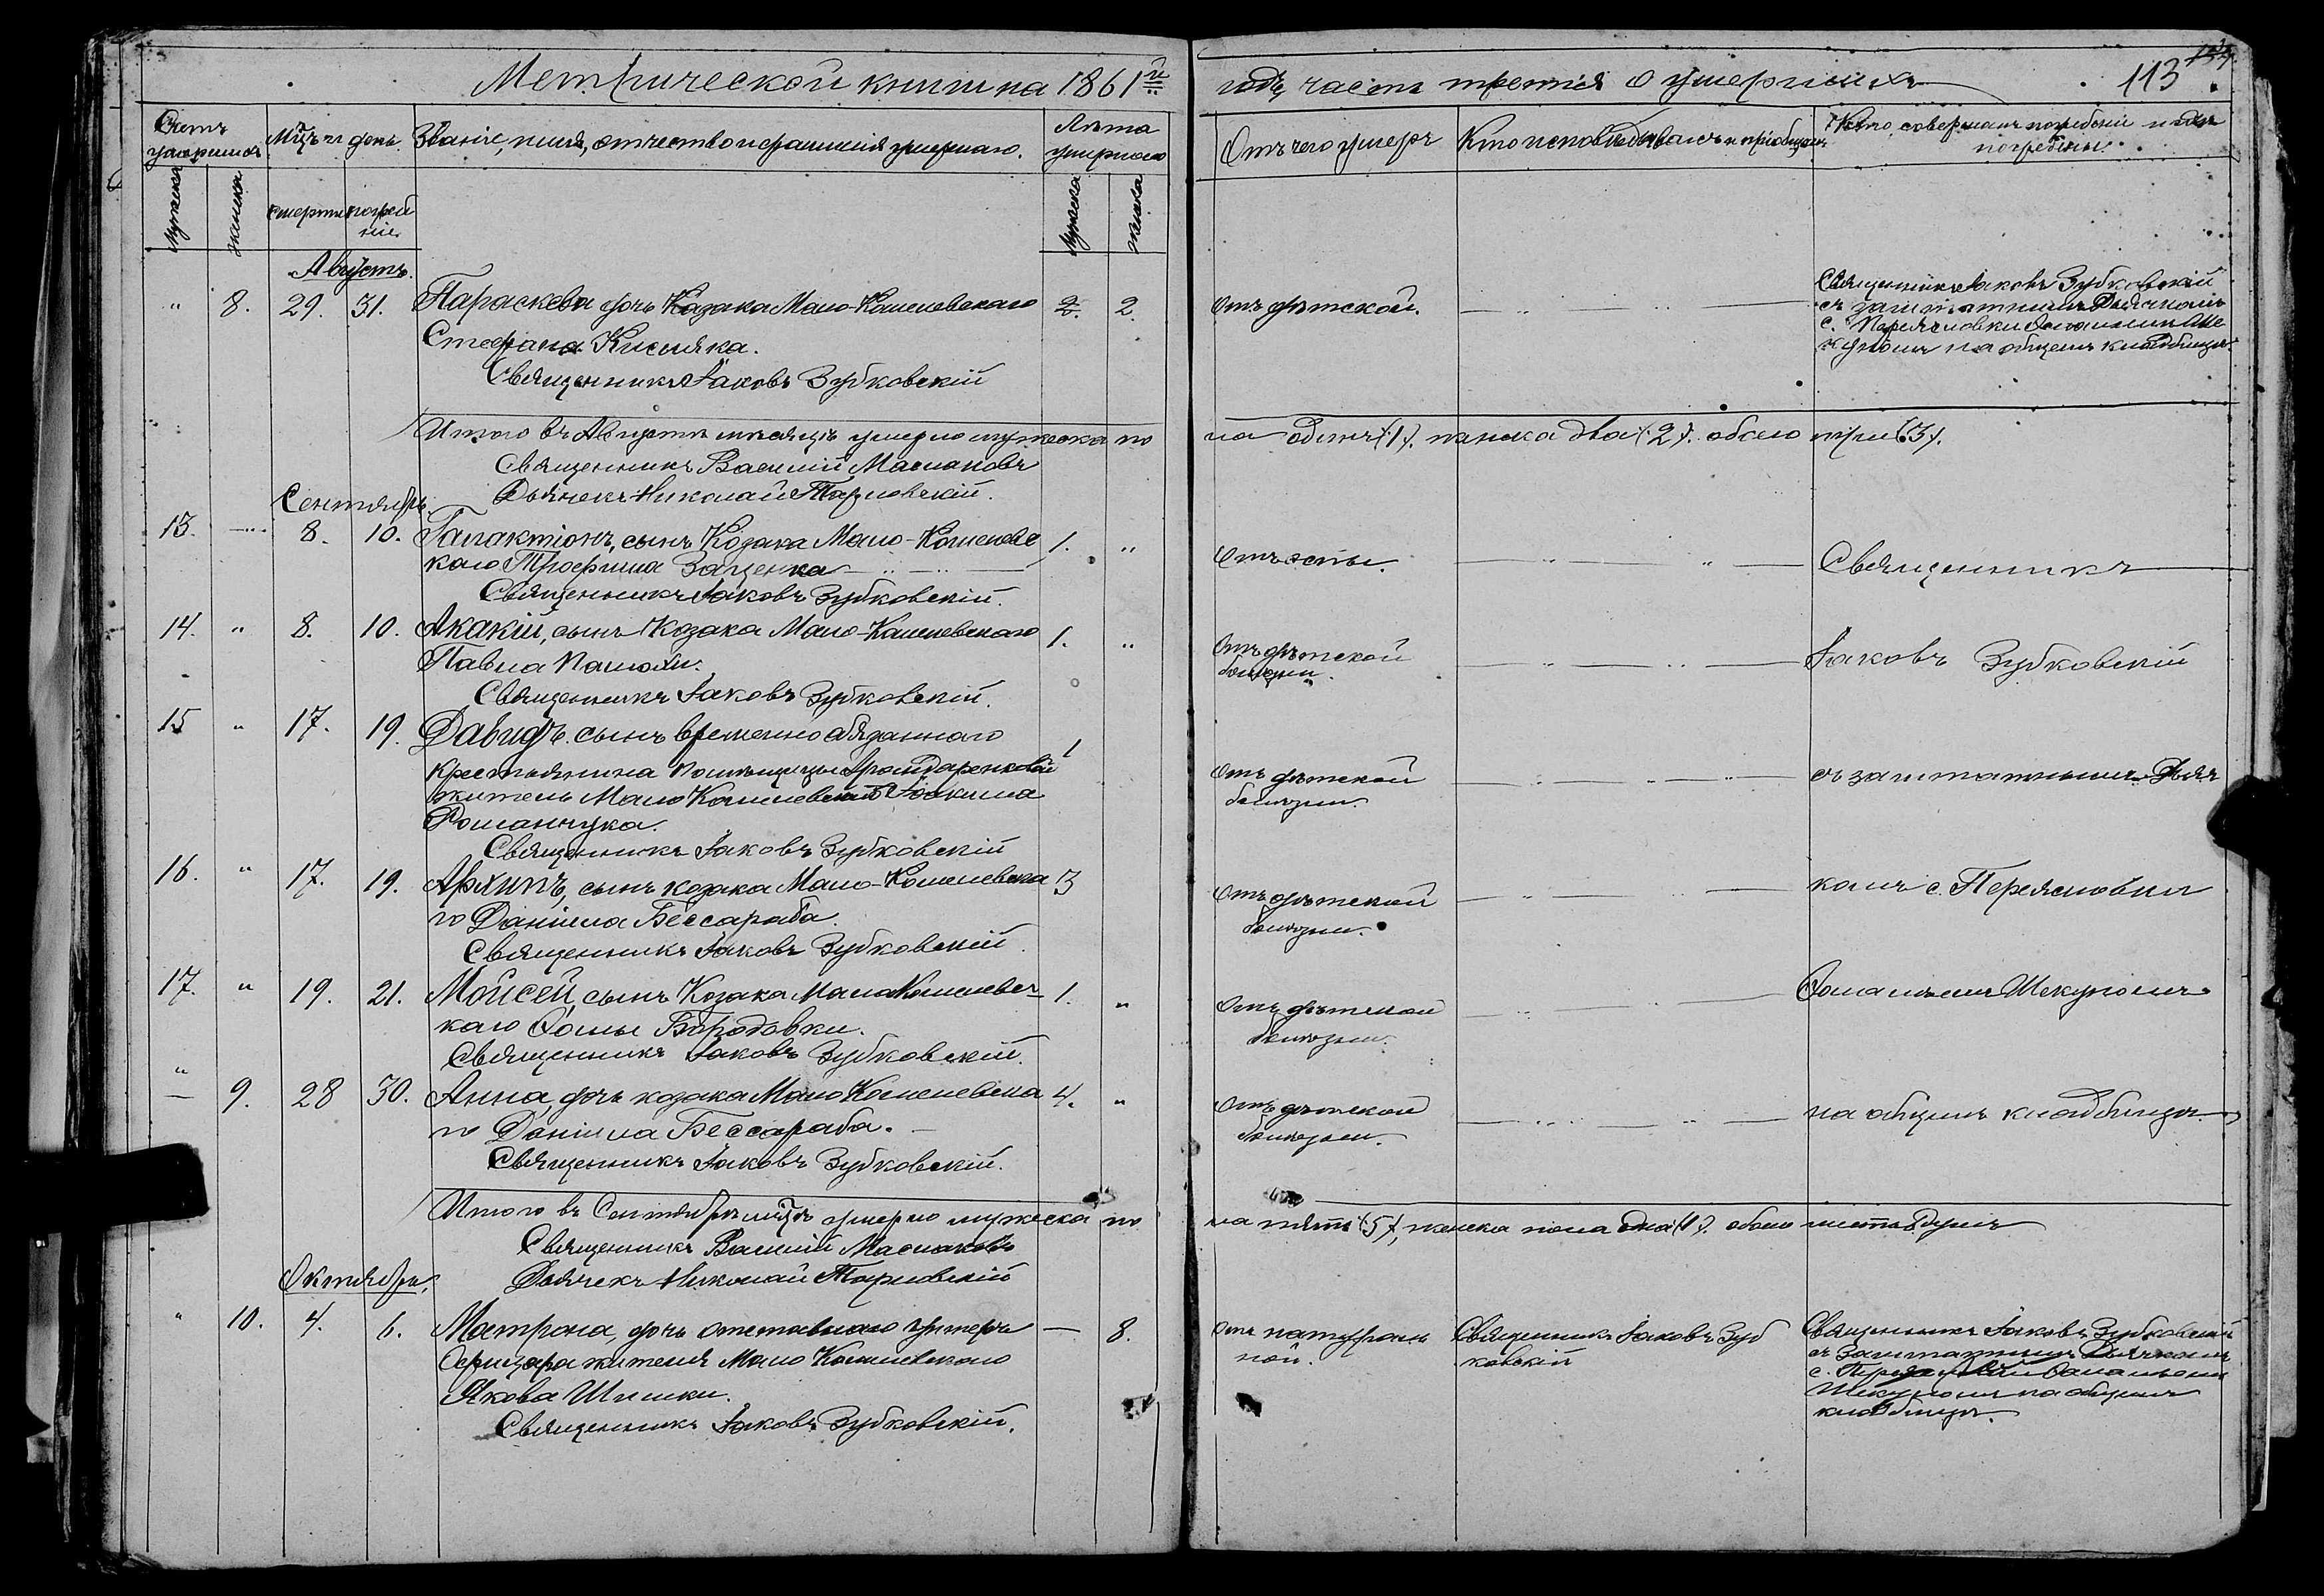 Метрической книги на 1861й
годъ, часть третія о умершихъ
113
Счетъ умершихъ
Мцъ и день
Званіе, имя, отчество и фамилія умершаго.
Лѣта умершаго
Отъ чего умеръ
Кто исповѣдывалъ и пріобщалъ
Кто совершалъ погребеніе и гдѣ погребены.
Мужеска
женска
смерти
погребенія
Мужеска
женска
Августъ.
" 8. 29. 31. Параскева дочь Козака Мало-Кошелевскаго 2. 2.
Стефана Кисляка.
Священникъ Іаковъ Зубковскій
Отъ дѣтской.
Священникъ Іаковъ Зубковскій
съ заштатнымъ Дьячкомъ
с. Переясловки
на общемъ кладбищѣ.
Итого въ Августѣ мѣсяцѣ умерло мужеска по
ла одинъ (1). женска два (2). обоего три (3).
Священникъ Василій Маслаковъ
Дьячекъ Николай Тарловскій.
Сентябрь.
13. 8. 10. Галактіонъ, сынъ Козака Мало-Кошелевс 1. "
каго Трофима Зощенка
Священникъ Іаковъ Зубковскій.
Отъ оспы.
Священникъ
14. " 8. 10. Акакій, сынъ Козака Мало-Кошелевскаго 1. "
Павла
Священникъ Іаковъ Зубковскій.
Отъ дѣтской
болезни.
Іаковъ Зубковскій
15 " 17. 19. Давидъ. сынъ временно обязаннаго 1
крестьянина помѣщицы
житель Мало Кошелевскаго Іоакима
Романчука.
Священникъ Іаковъ Зубковскій
Отъ дѣтской
болѣзни.
съ заштатнымъ Дьяч
16. " 17. 19. Архипъ, сынъ козака Мало-Кошелевска 3
го Даніила Бессараба.
Священникъ Іаковъ Зубковскій.
Отъ дѣтской
болѣзни.
комъ с. Переясловки
17. " 19. 21. Моисей, сынъ Козака Мало Кошелевс 1. "
каго Ѳомы Бородавки.
Священникъ Іаковъ Зубковскій.
Отъ дѣтской
болѣзни.
Шекуномъ
" 9. 28 30. Анна, дочь козака Мало Кошелевска 4. "
го Даніила Бессараба.
Священникъ Іаковъ Зубковскій.
Отъ дѣтской
болѣзни.
на общемъ кладбищѣ
Итого въ Сентябрѣ мцѣ умерло мужеска по
ла пять (5), женска пола одна (1). обоего шесть душъ
Священникъ Василій Маслаковъ
Дьячекъ Николай Тарловскій
Октябрь.
" 10. 4. 6. Матрона, дочь отставнаго унтеръ — 8.
Офицера жителя Мало Кошелевскаго
Якова Шишки.
Священникъ Іаковъ Зубковскій.
Отъ натураль
ной.
Священникъ Іаковъ Зуб
ковскій
Священникъ Іаковъ Зубковскій
съ Заштатнымъ Дьячкомъ
Шекуномъ на общемъ
кладбищѣ.